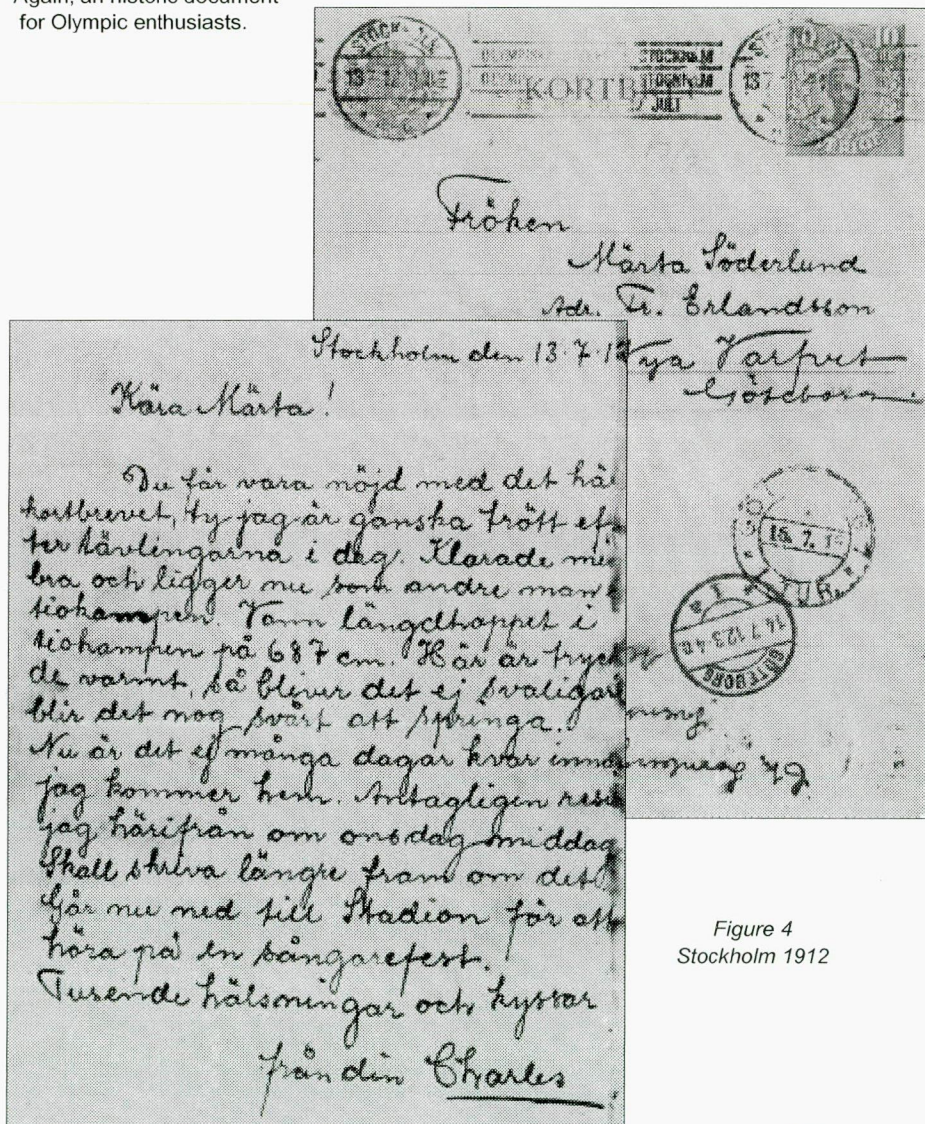 Again, an historic document
for Olympic enthusiasts.
STOCKHOLM
13 7 12
OLYMPISKA STOCKHOLM
STOCKHOLM
JULI
KORTBREV
13 7
10 10
SVERIGE
Fröken
Märta Söderlund
Adr. Fr. Erlandsson
Nya Varfvet
Göteborg
15.7.12
14.7.12 3-4
GÖTEBORG
Stockholm den 13.7.12
Kära Märta!
Du får vara nöjd med det hä
kortbrevet, ty jag är ganska trött ef
ter tävlingarna i dag. Klarade mi
bra och ligger nu som andre man
tiokampen. Vann längdhoppet i
tiokampen på 687 cm. Här är tryck
de varmt, så bliver det ej svaligare
blir det nog svårt att springa.
Nu är det ej många dagar kvar innan
jag kommer hem. Antagligen reser
jag härifrån om onsdag middag
Skall skriva längre fram om det.
Går nu ned till Stadion för att
höra på en sångarefest.
Tusende hälsningar och kyssar
från din Charles
Figure 4
Stockholm 1912